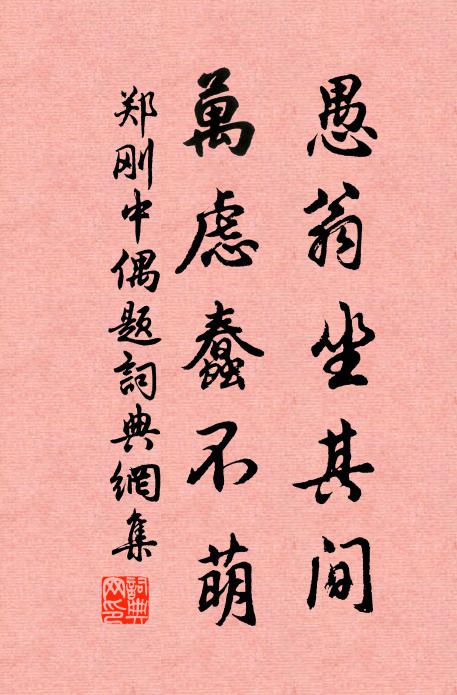 愚翁坐其间
萬慮蠢不萌
郑刚中偶题詞典網集
詞典网印